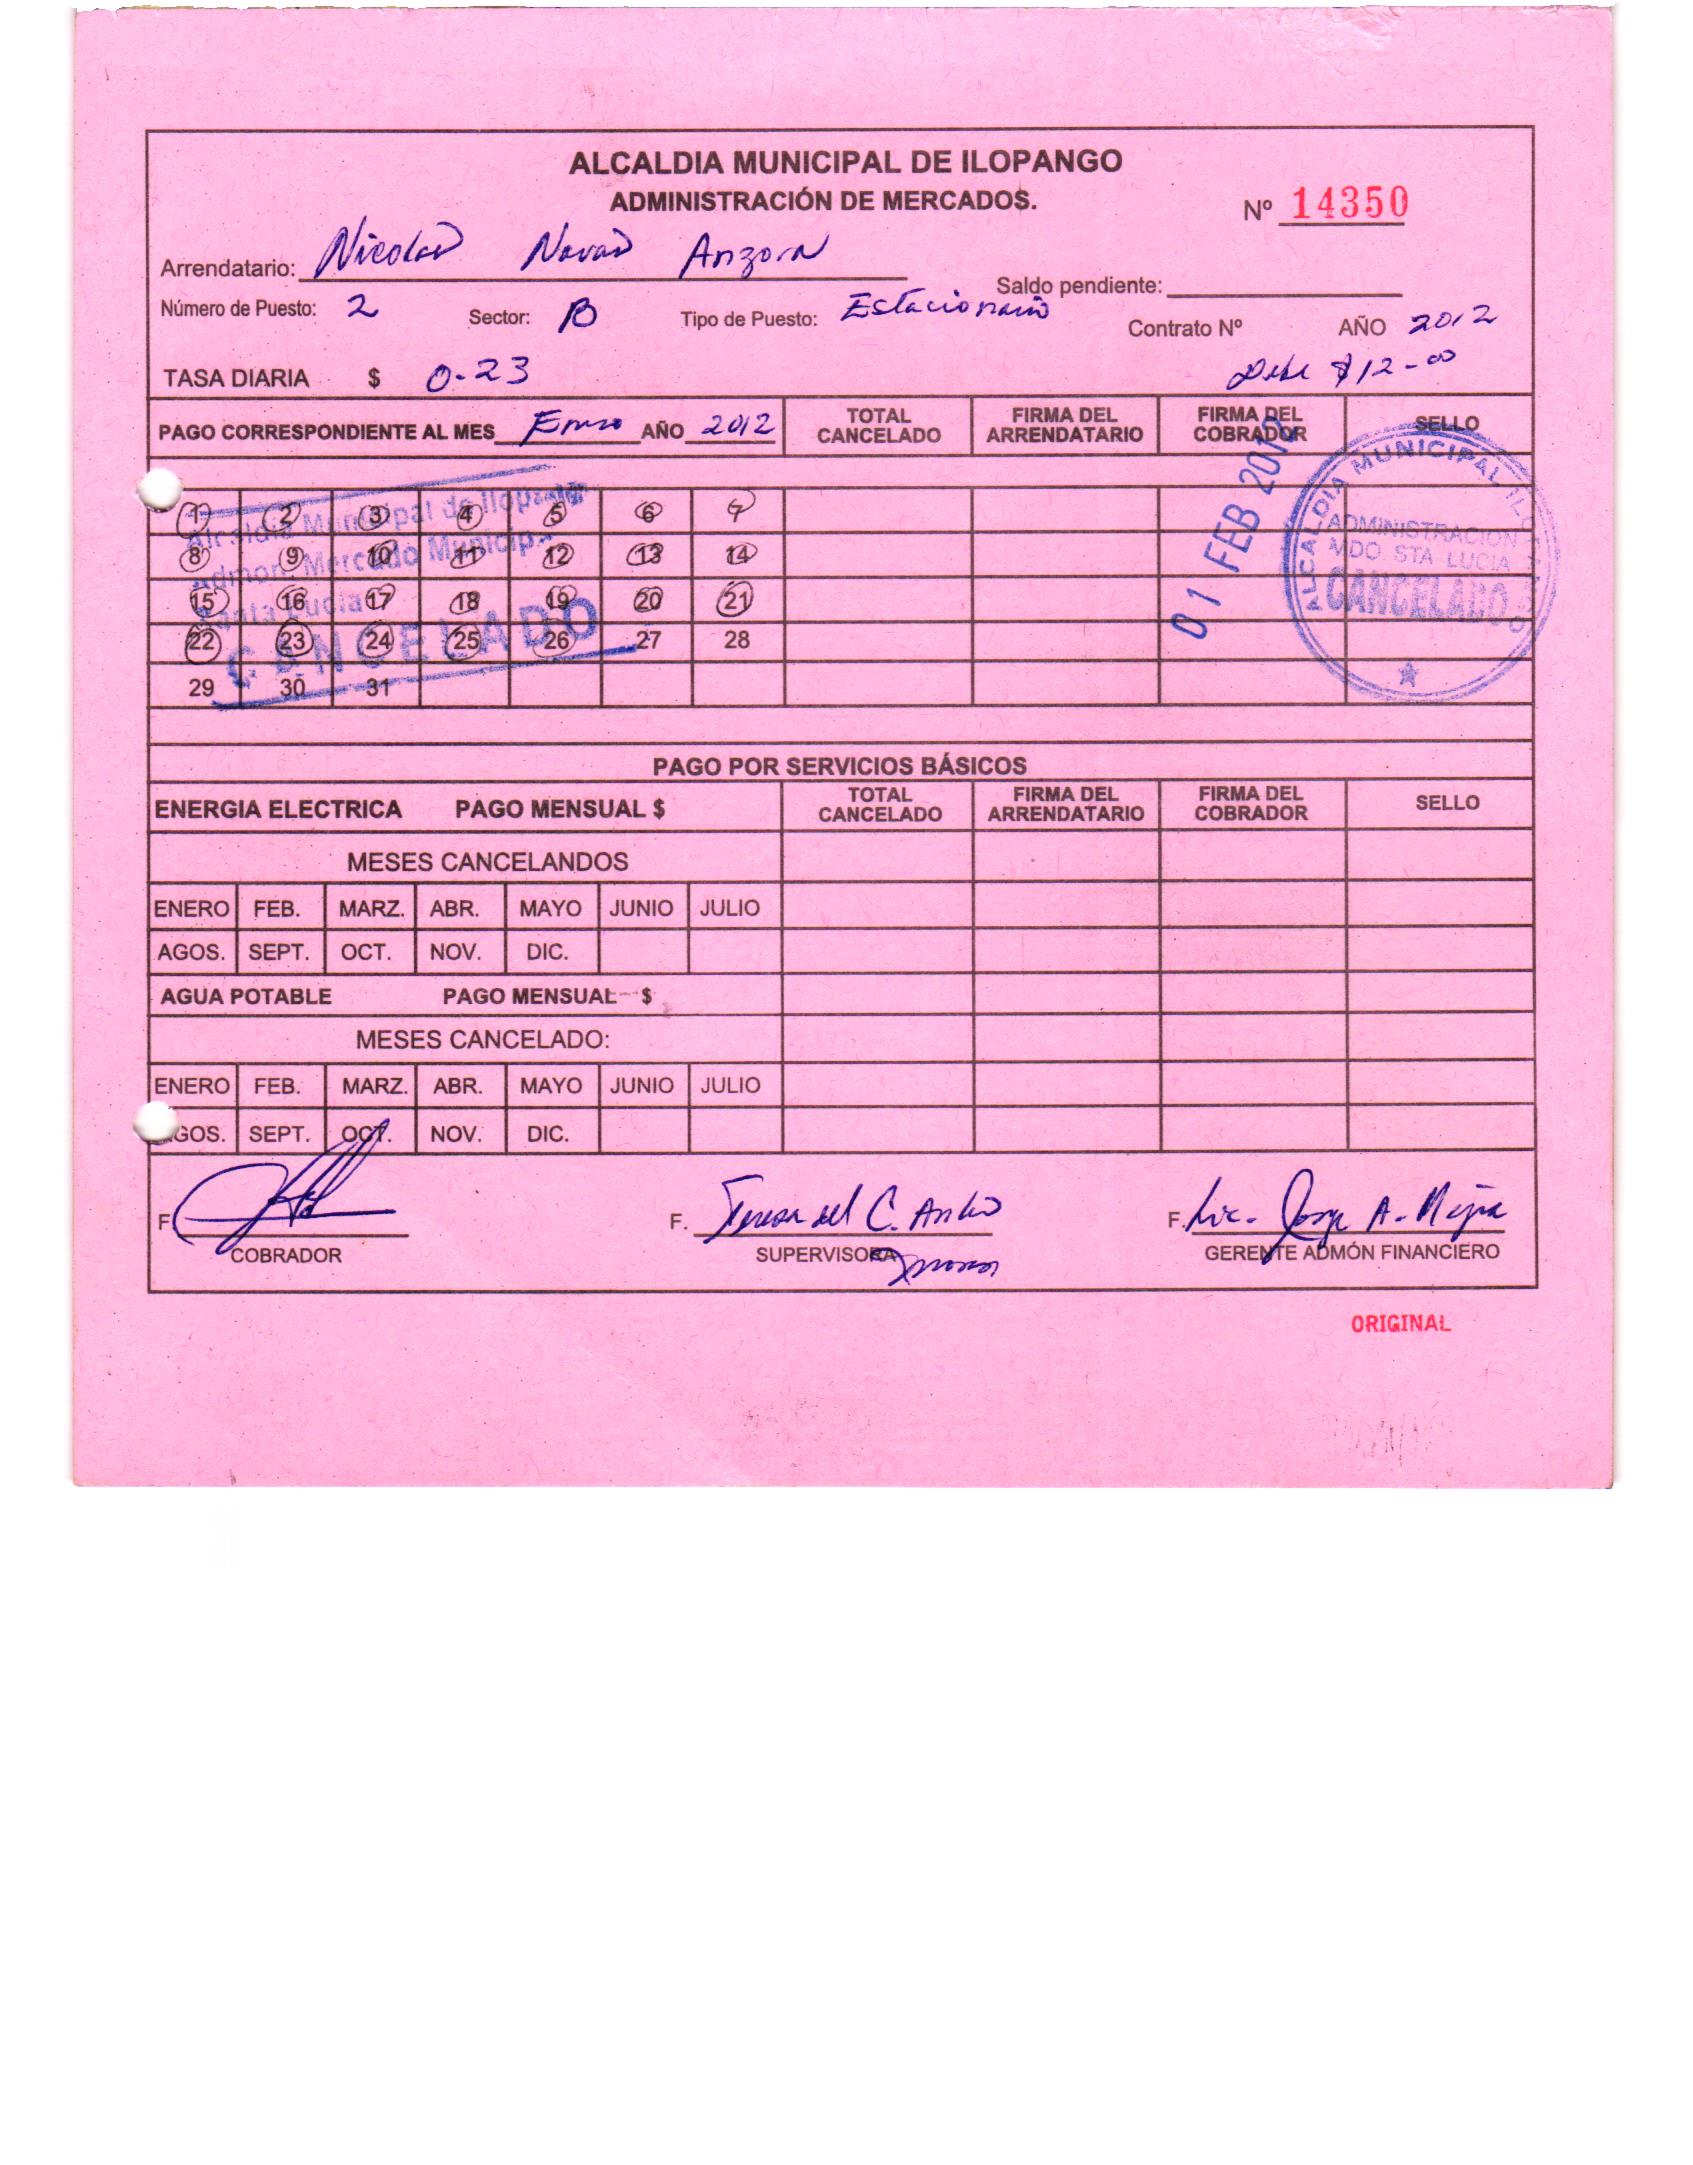 ALCALDIA MUNICIPAL DE ILOPANGO
ADMINISTRACIÓN DE MERCADOS.
Nº 14350
Arrendatario: Nicolas Navas Anzora
Saldo pendiente:
Número de Puesto: 2 Sector: B Tipo de Puesto: Estacionario Contrato Nº AÑO 2012
TASA DIARIA $ 0-23 Debe $12-00
PAGO CORRESPONDIENTE AL MES Enero AÑO 2012 TOTAL CANCELADO FIRMA DEL ARRENDATARIO FIRMA DEL COBRADOR SELLO
1 2 3 4 5 6 7
8 9 10 11 12 13 14
15 16 17 18 19 20 21
22 23 24 25 26 27 28
29 30 31
Alcaldia Municipal de Ilopango
Admon. Mercado Municip.
Santa Lucia
CANCELADO
01 FEB 2012
ALCALDIA MUNICIPAL ILOPANGO
ADMINISTRACION
MDO STA LUCIA
CANCELADO
PAGO POR SERVICIOS BÁSICOS
ENERGIA ELECTRICA PAGO MENSUAL $ TOTAL CANCELADO FIRMA DEL ARRENDATARIO FIRMA DEL COBRADOR SELLO
MESES CANCELANDOS
ENERO FEB. MARZ. ABR. MAYO JUNIO JULIO
AGOS. SEPT. OCT. NOV. DIC.
AGUA POTABLE PAGO MENSUAL $
MESES CANCELADO:
ENERO FEB. MARZ. ABR. MAYO JUNIO JULIO
AGOS. SEPT. OCT. NOV. DIC.
F. F. Teresa del C. F. Lic. Jorge A. Mejia
COBRADOR SUPERVISORA GERENTE ADMÓN FINANCIERO
ORIGINAL